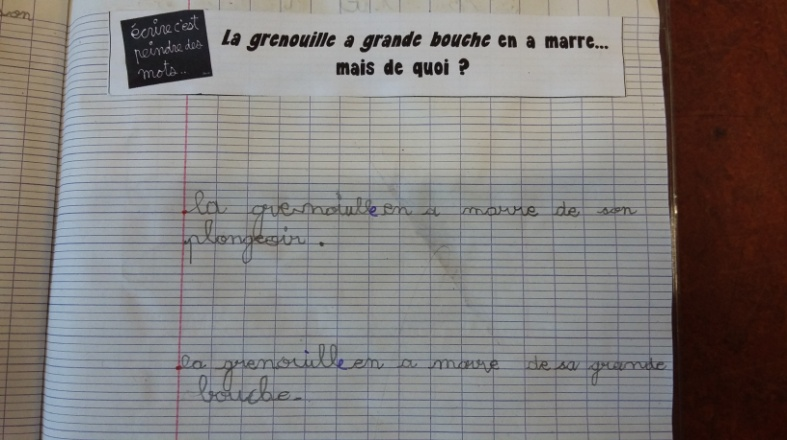 écrire c'est
peindre des
mots...
La grenouille a grande bouche en a marre...
mais de quoi ?
la grenouille en a marre de son
plongeoir.
la grenouille en a marre de sa grande
bouche.